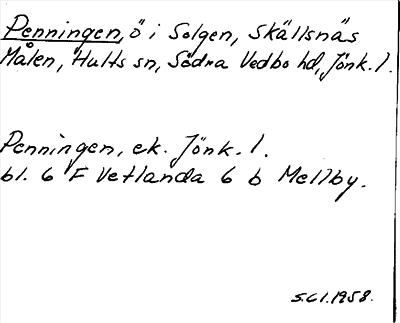 Penningen, ö i Solgen, Skällsnäs
Målen, Hults sn, Södra Vedbo hd, Jönk. l.
Penningen, ek. Jönk. l.
bl. 6 F Vetlanda 6 b Mellby.
1958.